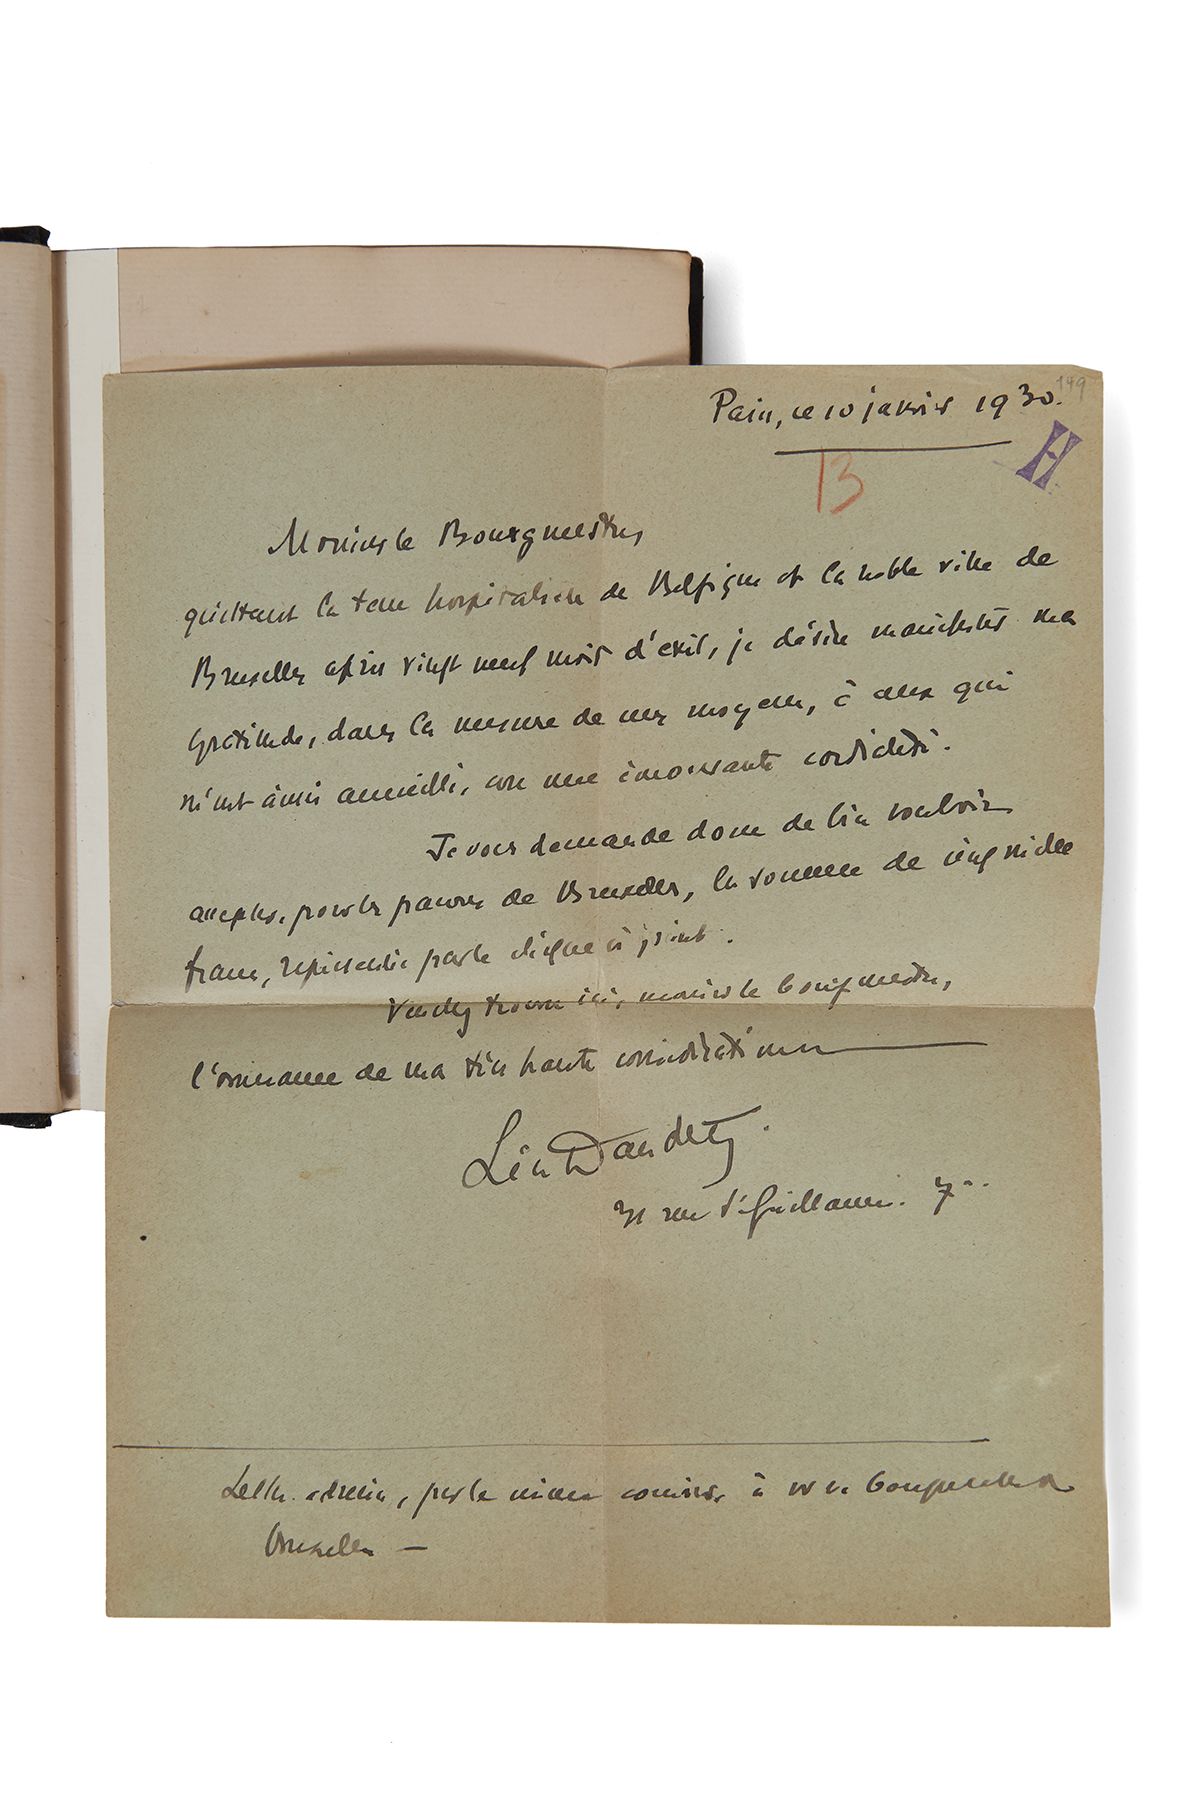 149
Paris, ce 10 janvier 1930.
H
13
Monsieur le Bourgmestre,
quittant la terre hospitalière de Belgique et la noble ville de
Bruxelles après vingt neuf mois d'exil, je désire manifester ma
gratitude, dans la mesure de mes moyens, à ceux qui
m'ont ainsi accueilli, avec une émouvante cordialité.
Je vous demande donc de bien vouloir
accepter, pour les pauvres de Bruxelles, la somme de cinq mille
francs, représentée par le chèque ci joint.
Veuillez trouver ici, monsieur le bourgmestre,
l'assurance de ma très haute considération
Léon Daudet
31 rue St Guillaume. 7e
Lettre adressée, par le même courrier, à M. le bourgmestre de
Bruxelles —